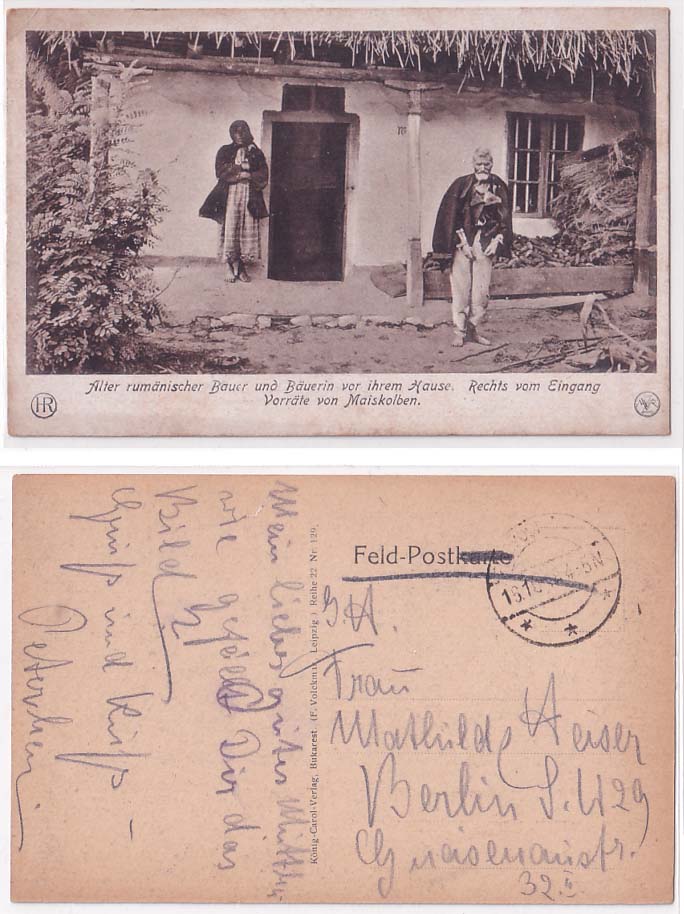 Alter rumänischer Bauer und Bäuerin vor ihrem Hause. Rechts vom Eingang
Vorräte von Maiskolben.
HR
Feld-Postkarte
S.A.
Frau
Mathilde Heiser
Berlin S.W29
Gneisenaustr.
32 II
König-Carol-Verlag, Bukarest. (F. Volckmar, Leipzig) Reihe 22 Nr. 129.
Mein liebes gutes
wie gefällt Dir das
Bild?
Gruß und Kuß
Peterchen.